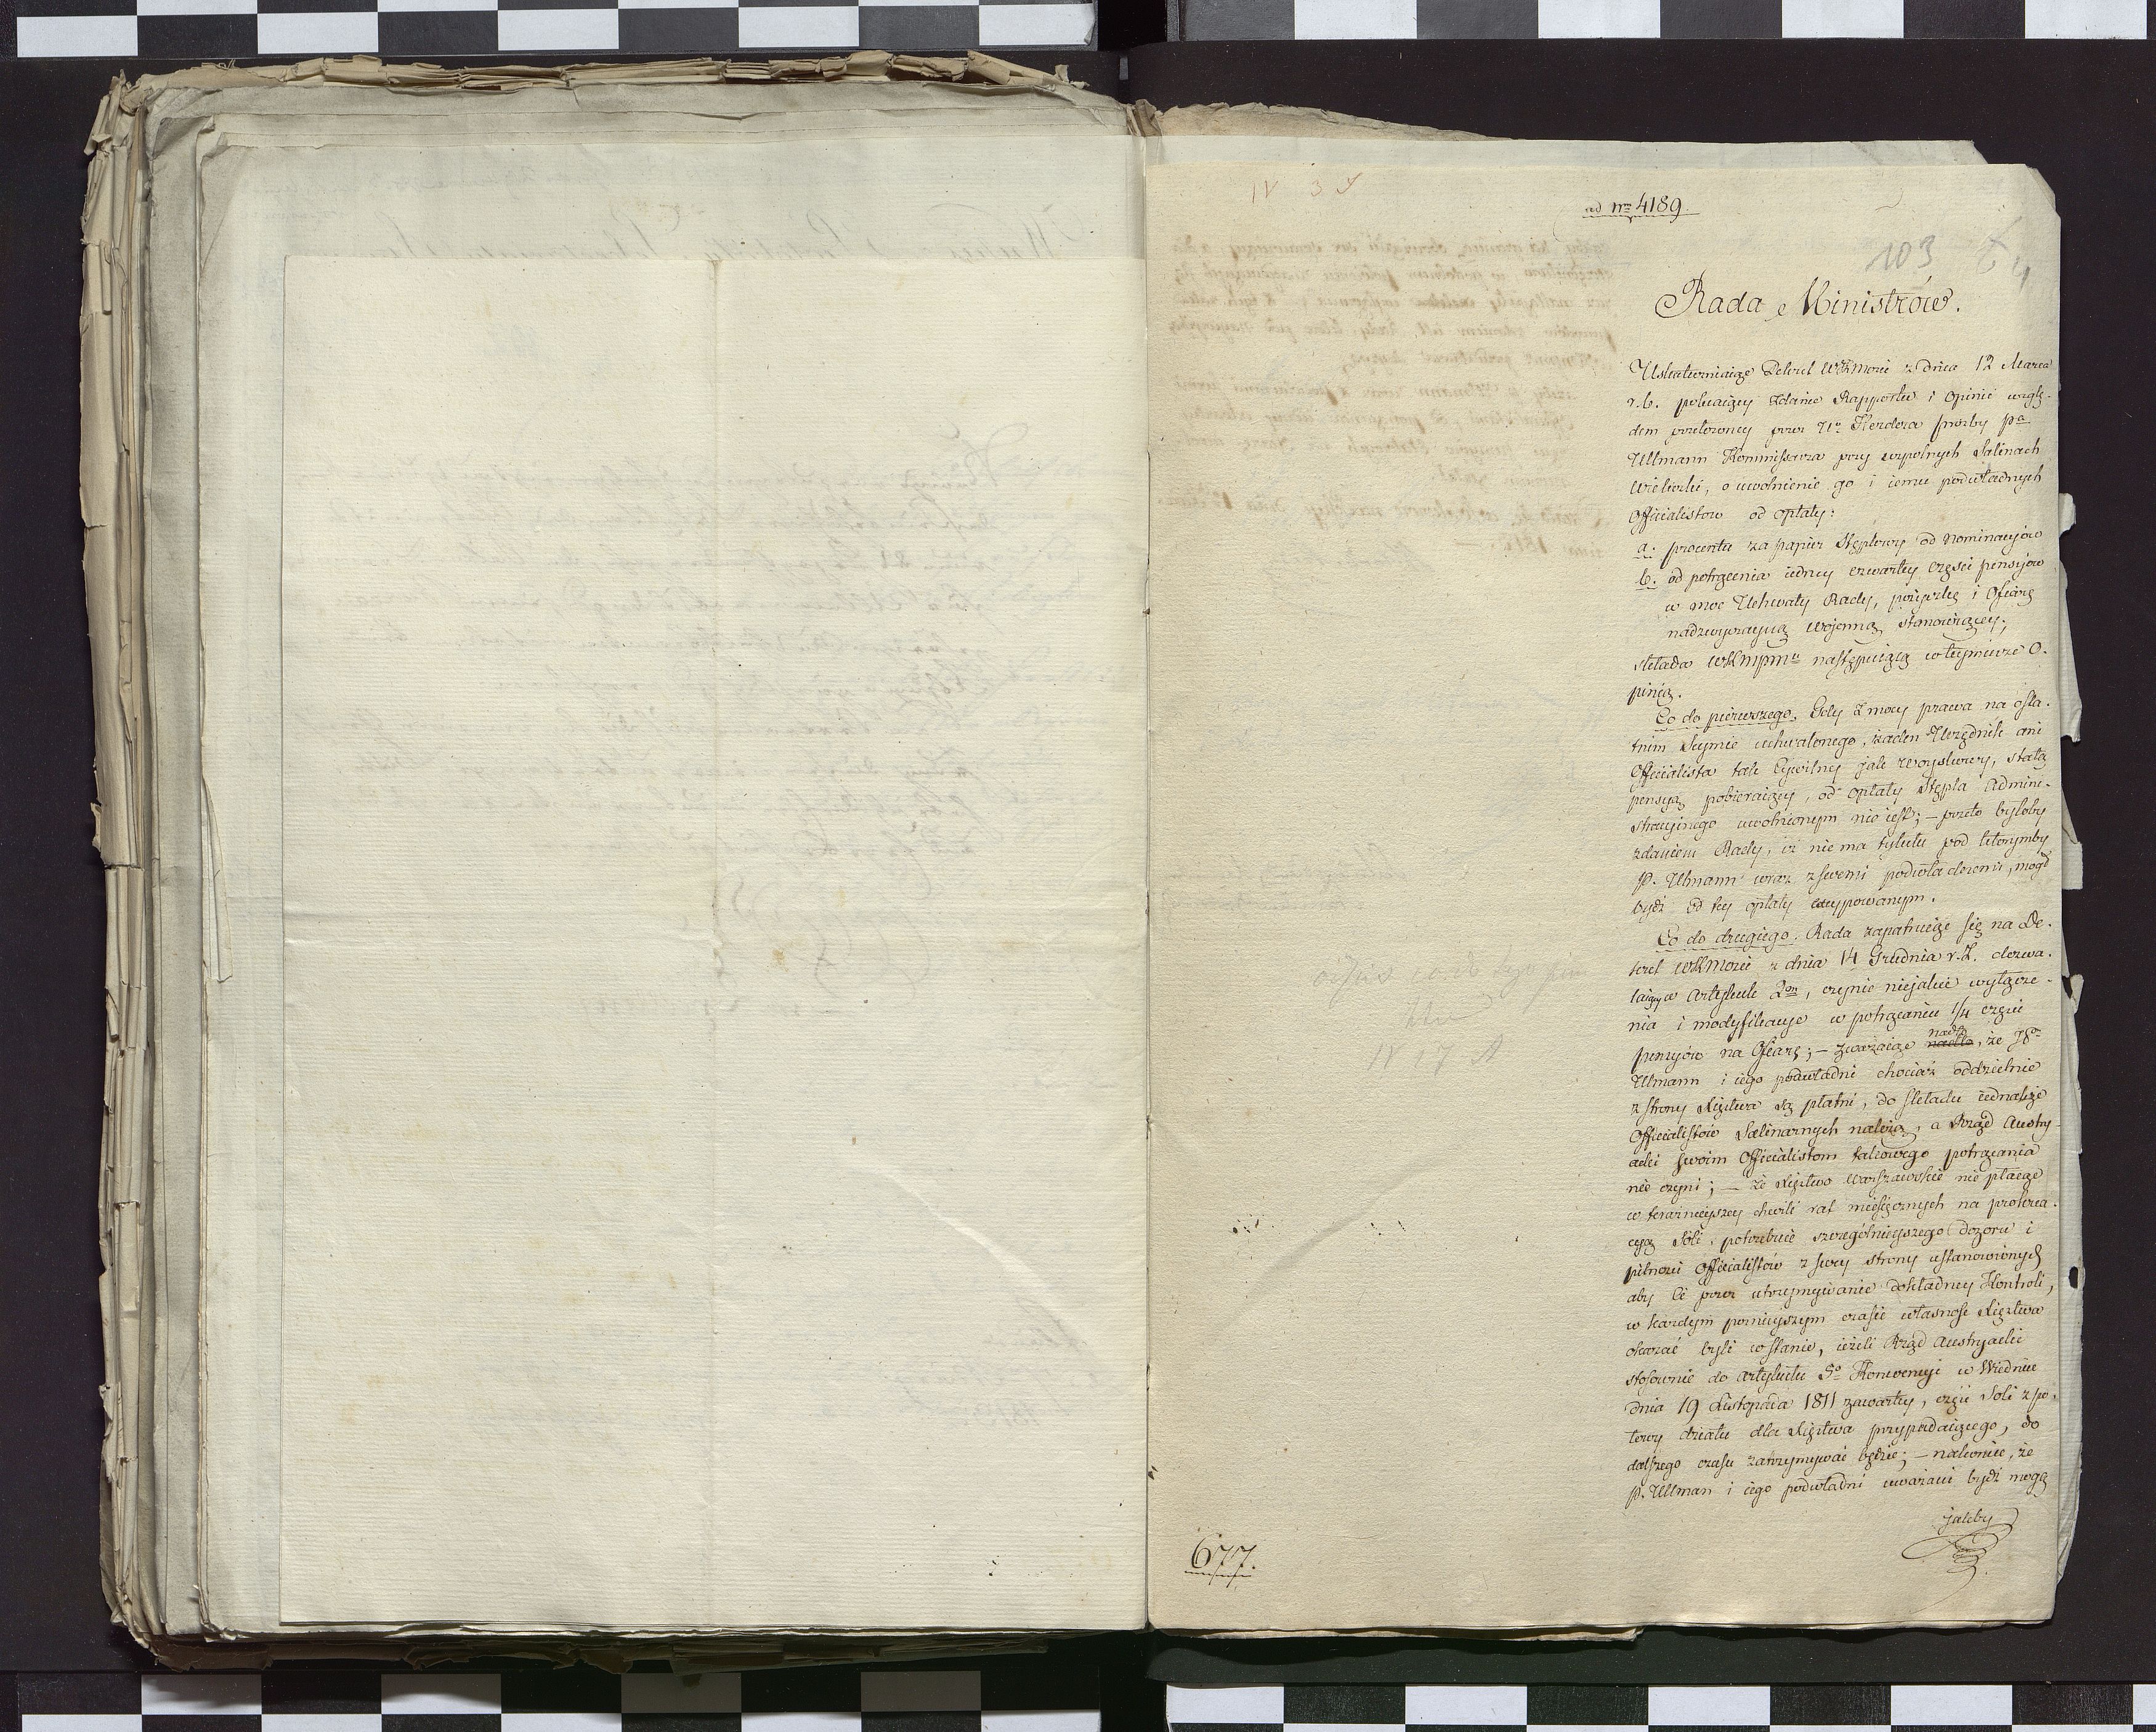 IV 3 J
ad nrm 4189
103
Rada Ministrów.
Uskuteczniaiąc Dekret WKMości z dnia 12 Marca
r. b. polecaiący zdanie Rapportu i Opinii wzglę-
dem przełożoney przez Kordona prośby Pa
Ullmann Kommissarza przy wspólnych Salinach
Wieliczki, o uwolnienie go i iemu podwładnych
Officialistow od opłaty:
a. procentu za papier Stęplowy od Nominacyiów
b. od potrącenia iedney czwartey części pensyiów
w moc Uchwały Rady, pożyczkę i Ofiarę
nadzwyczayną woienną stanowiącey;
składa WKMPMu następuiącą w teymierze O-
pinią.
Co do pierwszego. Gdy z mocy prawa na osta-
tnim Seymie uchwalonego, żaden Urzędnik ani
Officialista tak Cywilny jak woyskowy, stałą
pensyą pobieraiący, od opłaty Stępla Admini-
stracyinego uwolnionym nie iest; – przeto byłoby
zdaniem Rady, iż nie ma tytułu pod któremby
P. Ulmann wraz z swemi podwładnemi, mógł
bydź od tey opłaty excypowanym.
Co do drugiego. Rada zapatruiąc się na De-
kret WKMości z dnia 14 Grudnia r. z. dozwa-
laiący w Artykule 2on, czynić nieiakie wyłącze-
nia i modyfikacye w potrącaniu 1/4 części
pensyiów na Ofiarę; – zważaiąc nadto, że Pn
Ulmann i iego podwładni chociaż oddzielnie
z strony Xięztwa są płatni, do składu iednakże
Officialistów Salinarnych należą, a Rząd Austry-
acki swoim Officialistom takowego potrącania
nie czyni; – że Xięztwo Warszawskie nie płacąc
w teraznieyszey chwili rat miesięcznych na produka-
cyą Soli, potrzebuie szczególnieyszego dozoru i
pilności Officialistów z swey strony ustanowionych
aby Ci przez utrzymywanie dokładney Kontroli,
w każdym poznieyszym czasie własność Xięztwa
okazać byli w stanie, ieżeli Rząd Austryacki
stosownie do Artykułu 5o Konwencyi w Wiedniu
dnia 19 Listopada 1811 zawartey, część Soli z po-
łowy działu dla Xięztwa przypadaiącego, do
dalszego czasu zatrzymywać będzie; – nakoniec, że
P. Ullman i iego podwładni uważani bydź mogą
jakby
IV 17 A
677.